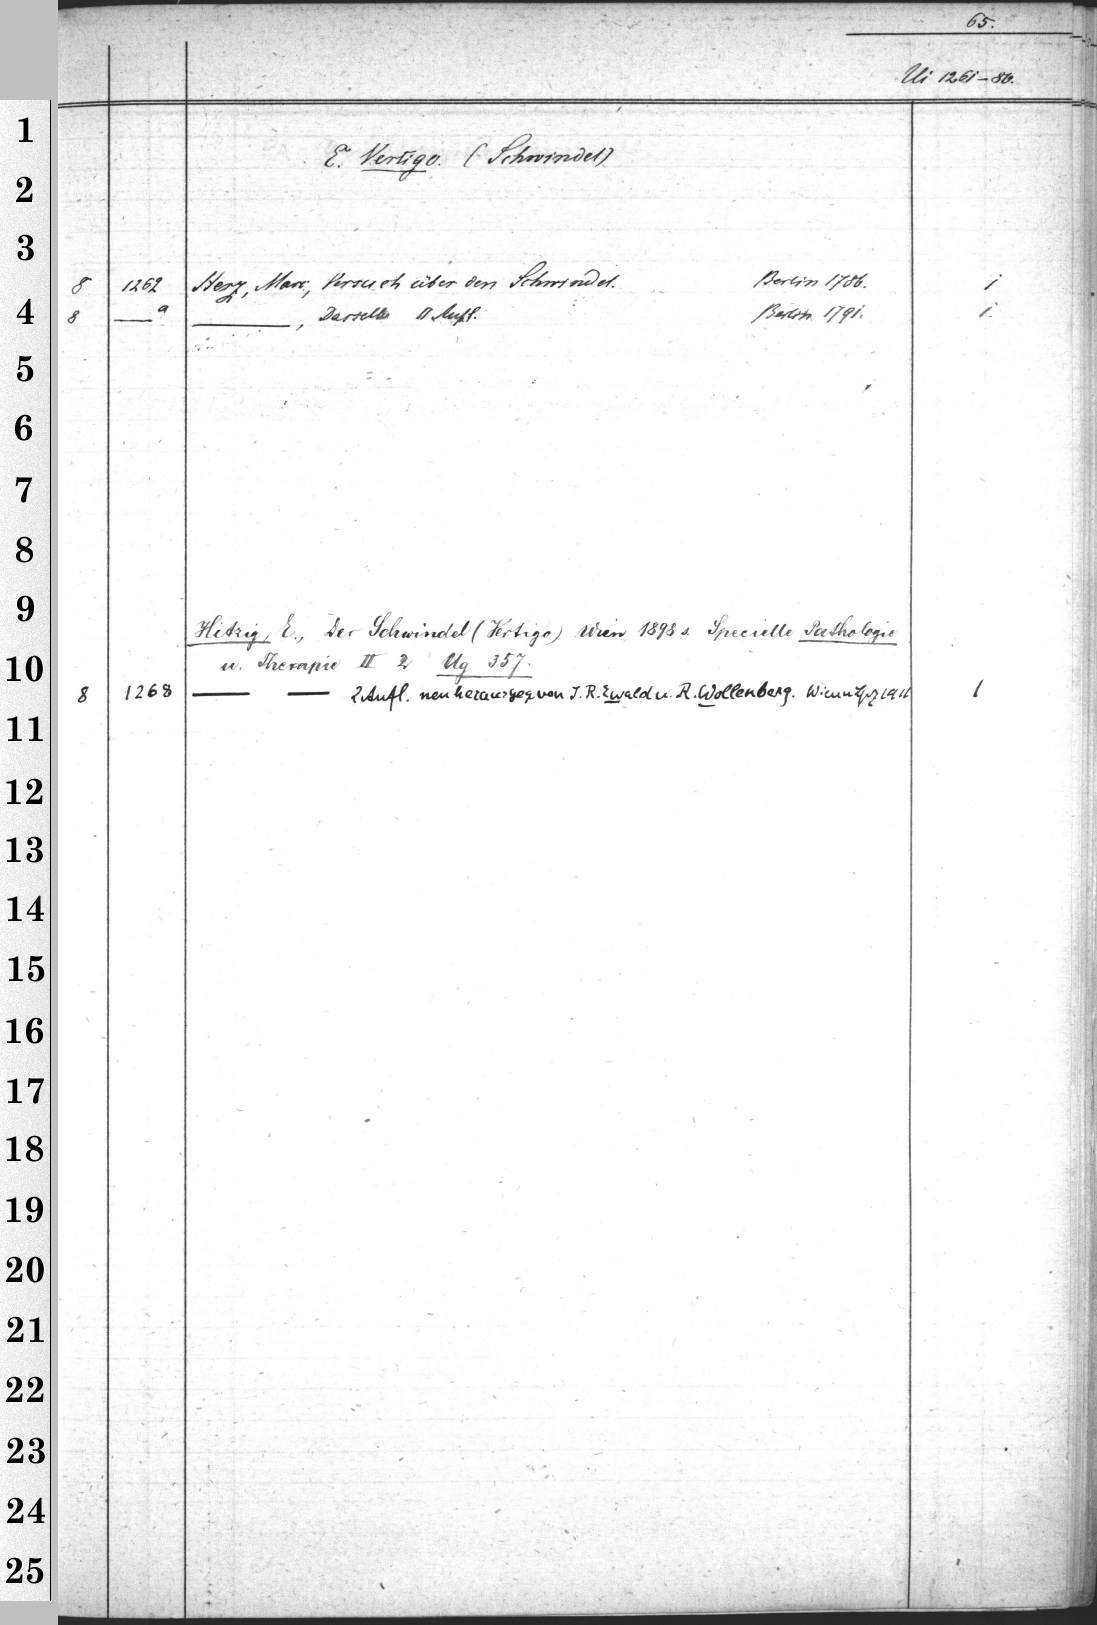 65.
Ui 1261-80.
E. Vertigo. (Schwindel)
8 1262 Herz, Marc, Versuch über den Schwindel. Berlin 1786. 1
8 — a —, Dasselbe II Aufl. Berlin 1791. 1.
Hitzig, E., Der Schwindel (Vertigo) Wien 1898 s. Specielle Pathologie
u. Therapie II 2 Ug 357.
8 1268 — — 2 Aufl. neu herausgeg von J. R. Ewald u. R. Wollenberg. Wien u Lpz 1911 1
1
2
3
4
5
6
7
8
9
10
11
12
13
14
15
16
17
18
19
20
21
22
23
24
25